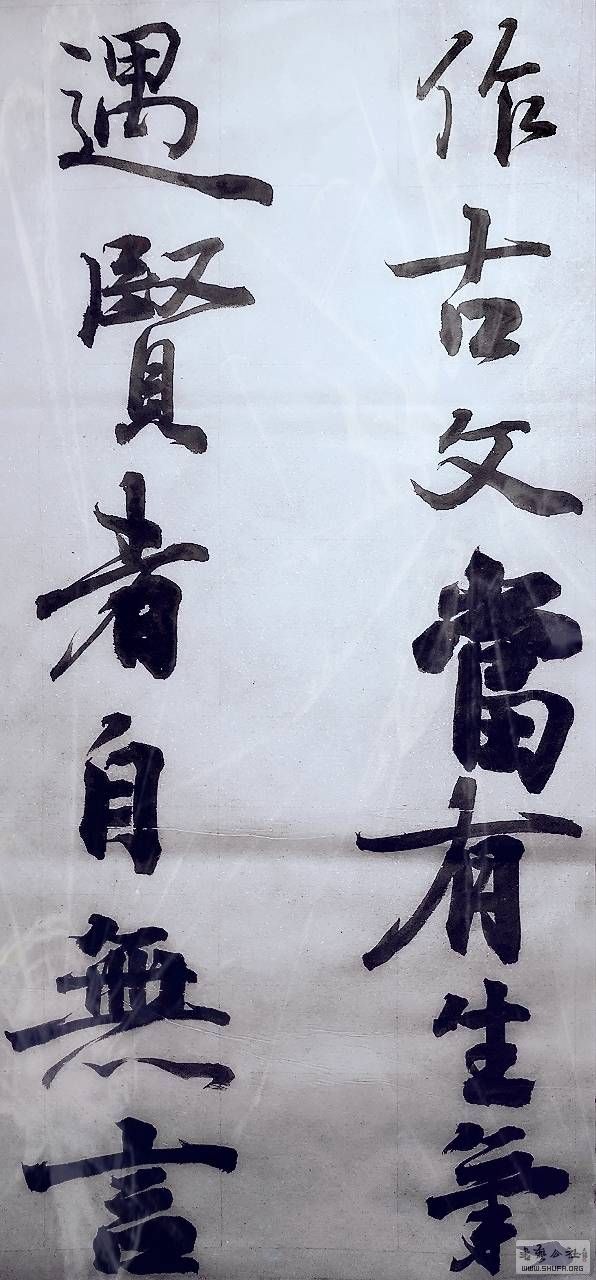 作古文當有生氣
遇賢者自無言
书艺公社
WWW.SHUFA.ORG